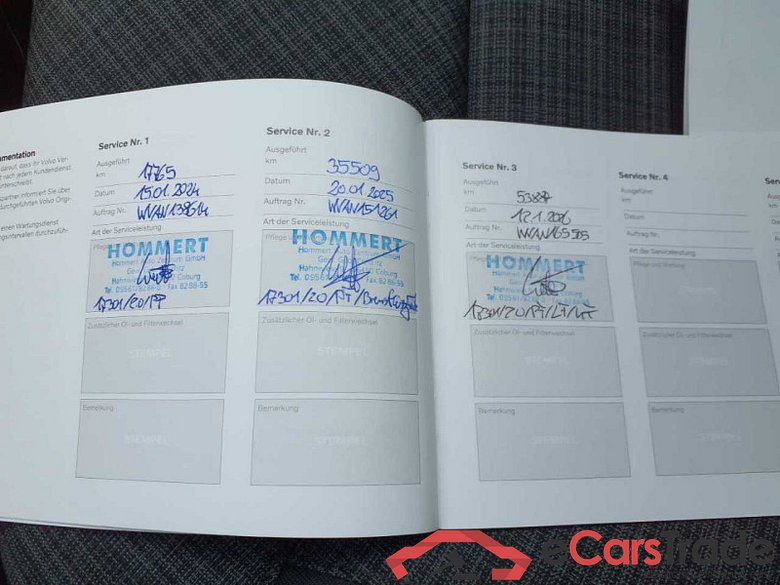 mentation
darauf, dass Ihr Volvo Ver-
nach jedem Kundendienst
unterschreibt.
partner informiert Sie über
durchgeführten Volvo Origi-
einen Wartungsdienst
Service Nr. 1
Ausgeführt
km 17765
Datum 15.01.2024
Auftrag Nr. WVAN138614
Art der Serviceleistung
HOMMERT
17301/20/PP
Zusätzlicher Öl- und Filterwechsel
STEMPEL
Bemerkung
STEMPEL
Service Nr. 2
Ausgeführt
km 35509
Datum 20.01.2025
Auftrag Nr. WVAN151261
Art der Serviceleistung
HOMMERT
Coburg
Tel. 09561/8288-0 Fax 8288-55
Zusätzlicher Öl- und Filterwechsel
STEMPEL
Bemerkung
STEMPEL
Service Nr. 3
Ausgeführt
km
Datum 12.1.2026
Auftrag Nr.
Art der Serviceleistung
HOMMERT
Zusätzlicher Öl- und Filterwechsel
STEMPEL
Bemerkung
STEMPEL
Service Nr. 4
Ausgeführt
km
Datum
Auftrag Nr.
Art der Serviceleistung
Pflege und Wartung
STEMPEL
Zusätzlicher Öl- und Filterwechsel
STEMPEL
Bemerkung
STEMPEL
eCarstrade